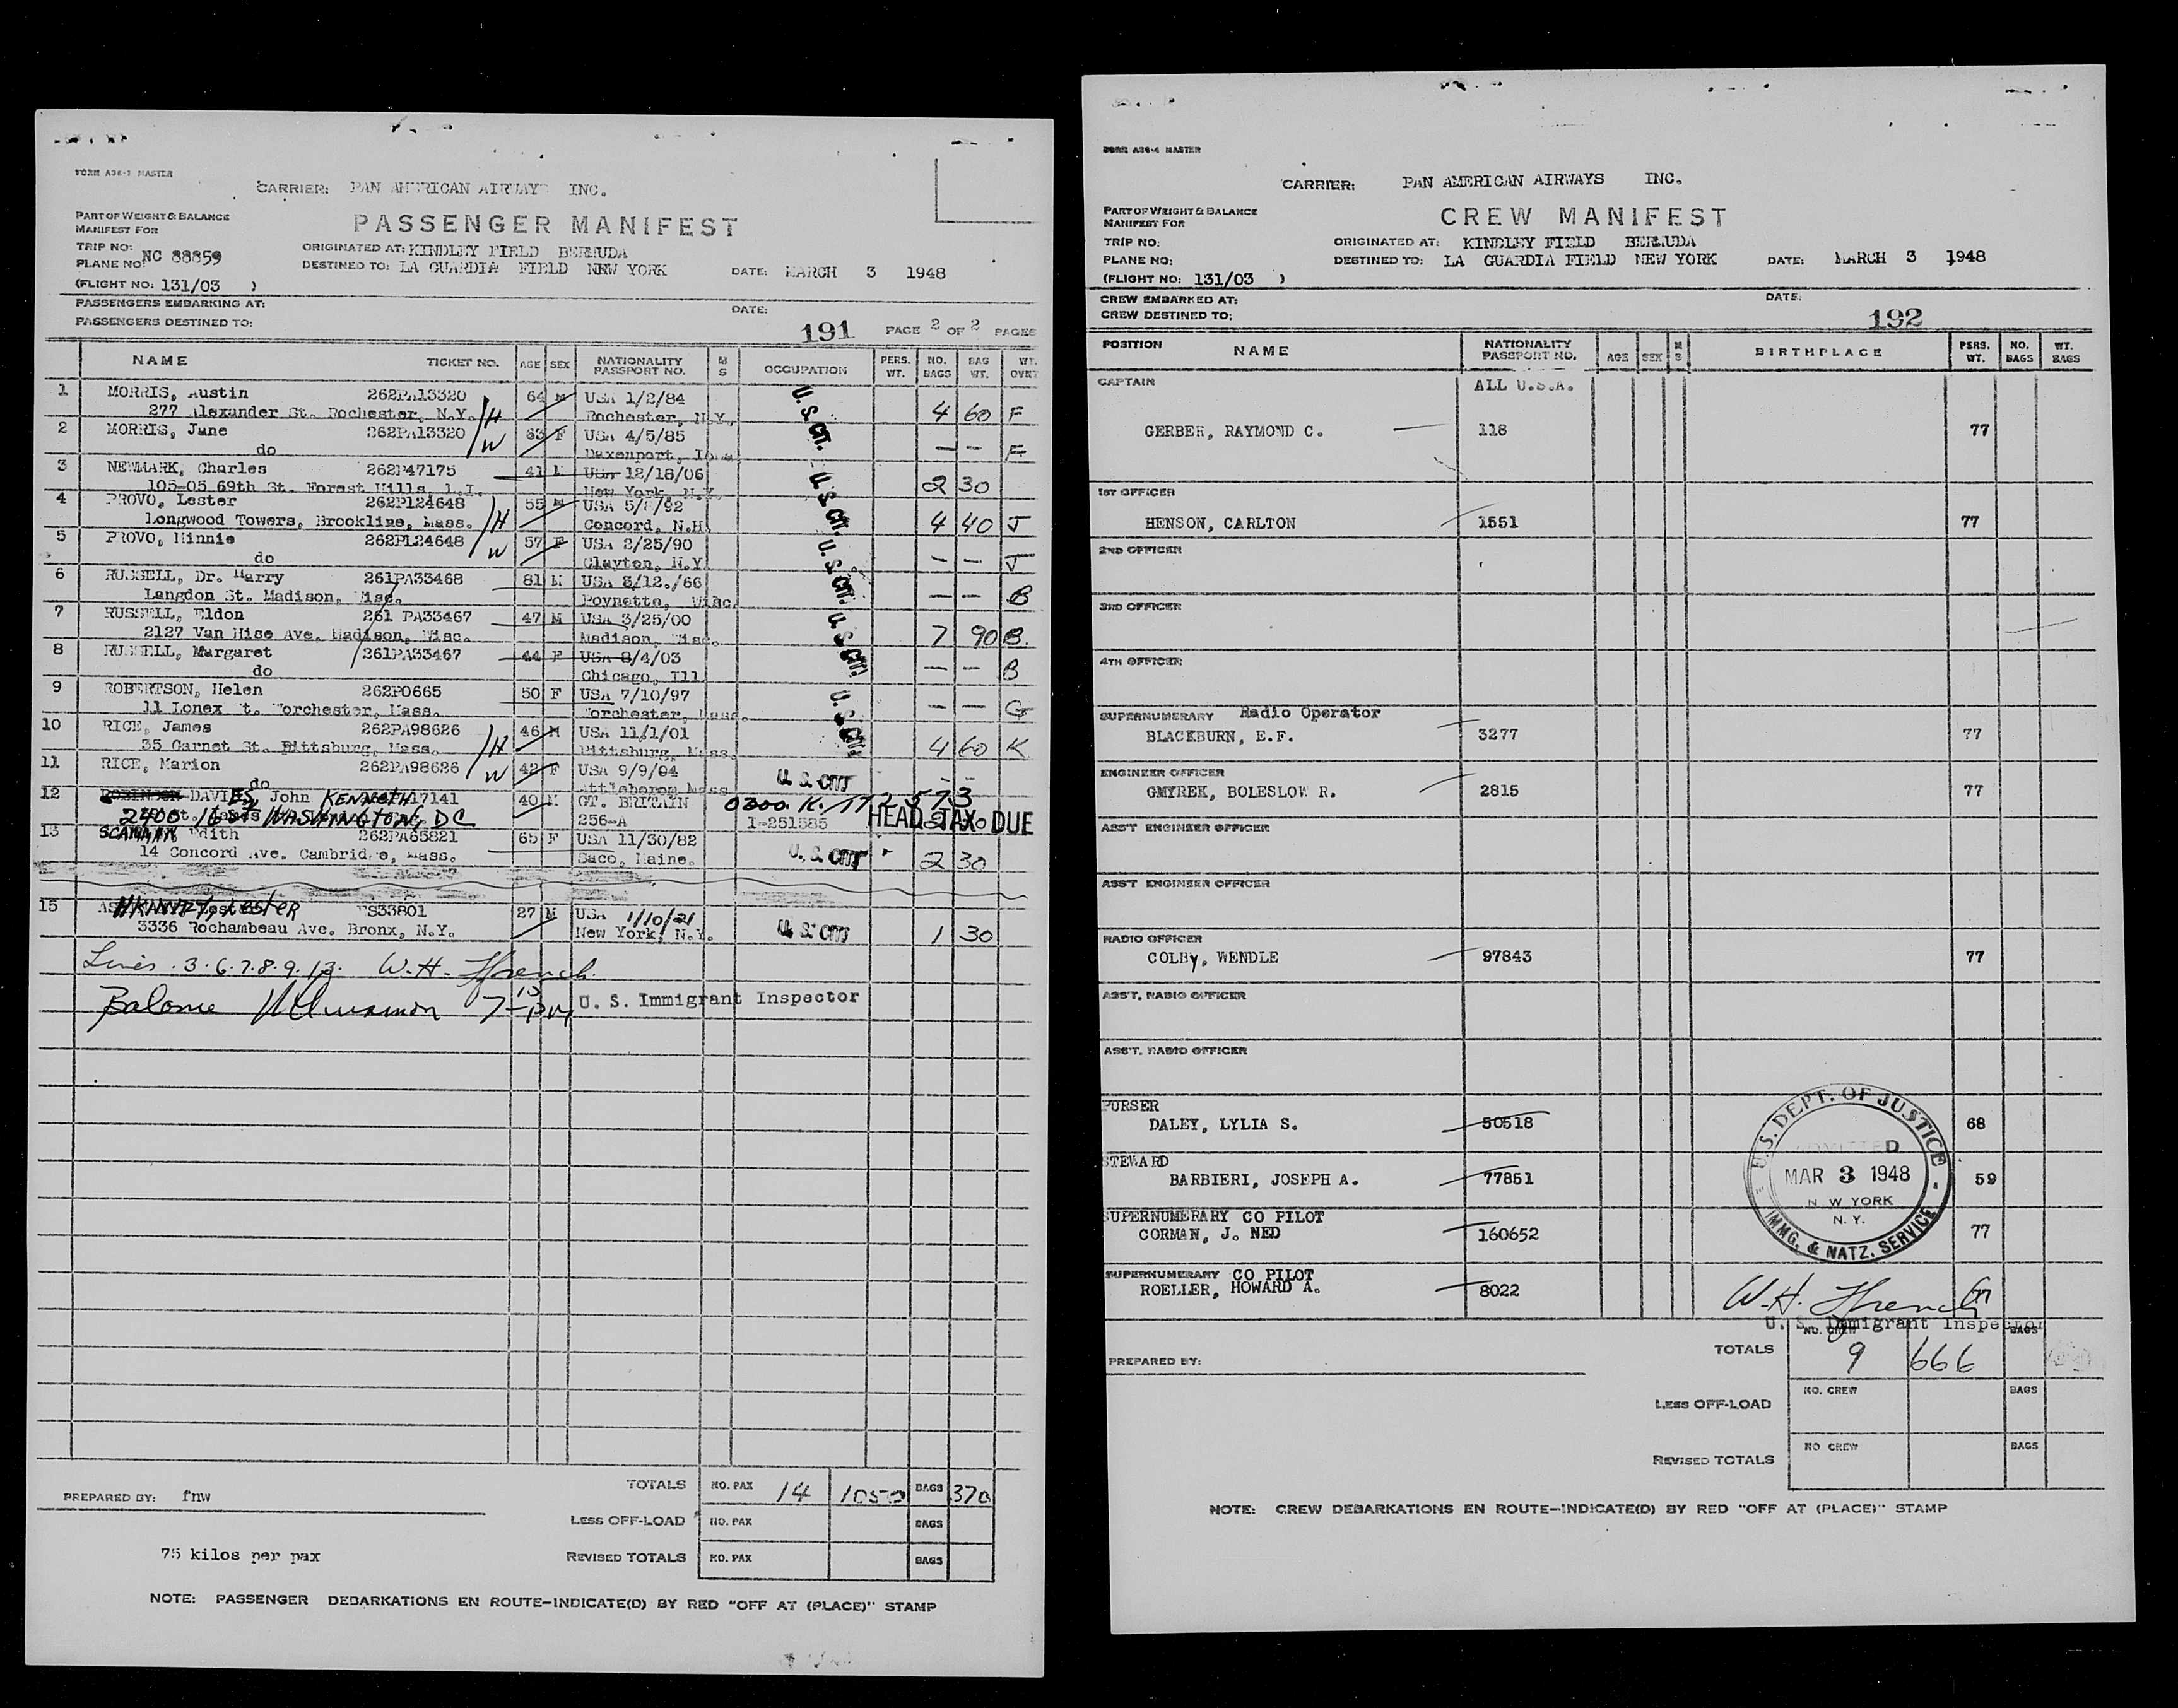 FORM A36-1 MASTER
CARRIER: PAN AMERICAN AIRWAYS INC.
PART OF WEIGHT & BALANCE
MANIFEST FOR
PASSENGER MANIFEST
TRIP NO:
PLANE NO: NC 88859
ORIGINATED AT: KINDLEY FIELD BERMUDA
DESTINED TO: LA GUARDIA FIELD NEW YORK DATE: MARCH 3 1948
(FLIGHT NO: 131/03 )
PASSENGERS EMBARKING AT: DATE:
PASSENGERS DESTINED TO: 191 PAGE 2 OF 2 PAGES
NAME TICKET NO. AGE SEX NATIONALITY PASSPORT NO. M S OCCUPATION PERS. WT. NO. BAGS BAG WT. WT. OVRT
1 MORRIS, Austin 262PA13320 64 M USA 1/2/84 U.S. CIT.
277 Alexander St. Rochester, N.Y. /H Rochester, N.Y. 4 60 F
2 MORRIS, June 262PA13320 63 F USA 4/5/85
do /W Davenport, Iowa — — F
3 NEWMARK, Charles 262P47175 41 M USA 12/18/06 U.S. CIT.
105-05 69th St. Forest Hills, L.I. New York, N.Y. 2 30
4 PROVO, Lester 262P124648 55 M USA 5/ /92
Longwood Towers, Brookline, Mass. /H Concord, N.H. 4 40 J
5 PROVO, Minnie 262P124648 57 F USA 2/25/90 U.S. CIT.
do W Clayton, N.Y. — — J
6 RUSSELL, Dr. Harry 261PA33468 81 M USA 3/12./66
Langdon St. Madison, Wisc. Poynette, Wisc. — — B
7 RUSSELL, Eldon 261 PA33467 47 M USA 3/25/00 U.S. CIT.
2127 Van Hise Ave. Madison, Wisc. Madison, Wisc. 7 90 B.
8 RUSSELL, Margaret 261PA33467 44 F USA 8/4/03
do Chicago, Ill — — B
9 ROBERTSON, Helen 262P0665 50 F USA 7/10/97 U.S. CIT.
11 Lonex St. Dorchester, Mass. Dorchester, Mass. — — G
10 RICE, James 262PA98626 46 M USA 11/1/01
35 Garnet St. Pittsburg, Mass. /H Pittsburg, Mass. 4 60 K
11 RICE, Marion 262PA98626 42 F USA 9/9/04
do W Attleboro Mass U.S. CIT — —
12 DAVIES, John KENNETH 17141 40 M GT. BRITAIN 0300. K.
2400 16 St WASHINGTON, DC 256-A I-251585 HEAD TAX DUE
13 Edith 262PA65821 65 F USA 11/30/82
14 Concord Ave. Cambridge, Mass. Saco, Maine. U.S. CIT 2 30
15 Lester S33801 27 M USA 1/10/21
3336 Rochambeau Ave. Bronx, N.Y. New York, N.Y. U.S. CIT 1 30
Lines . 3. 6. 7. 8. 9. 13. W.H. Ffrench
Balance U. S. Immigrant Inspector
PREPARED BY: fnw
TOTALS NO. PAX 14 1050 BAGS 370
LESS OFF-LOAD NO. PAX BAGS
75 kilos per pax
REVISED TOTALS NO. PAX BAGS
NOTE: PASSENGER DEBARKATIONS EN ROUTE—INDICATE(D) BY RED "OFF AT (PLACE)" STAMP
FORM A36-4 MASTER
CARRIER: PAN AMERICAN AIRWAYS INC.
PART OF WEIGHT & BALANCE
MANIFEST FOR
CREW MANIFEST
TRIP NO: ORIGINATED AT: KINDLEY FIELD BERMUDA
PLANE NO: DESTINED TO: LA GUARDIA FIELD NEW YORK DATE: MARCH 3 1948
(FLIGHT NO: 131/03 )
CREW EMBARKED AT: DATE:
CREW DESTINED TO: 192
POSITION NAME NATIONALITY PASSPORT NO. AGE SEX M S BIRTHPLACE PERS. WT. NO. BAGS WT. BAGS
CAPTAIN ALL U.S.A.
GERBER, RAYMOND C. 118 77
1ST OFFICER
HENSON, CARLTON 1551 77
2ND OFFICER
3RD OFFICER
4TH OFFICER
SUPERNUMERARY Radio Operator
BLACKBURN, E.F. 3277 77
ENGINEER OFFICER
GMYREK, BOLESLOW R. 2815 77
ASS'T ENGINEER OFFICER
ASS'T ENGINEER OFFICER
RADIO OFFICER
COLBY, WENDLE 97843 77
ASS'T. RADIO OFFICER
ASS'T. RADIO OFFICER
PURSER
DALEY, LYLIA S. 50518 68
STEWARD
BARBIERI, JOSEPH A. 77851 59
SUPERNUMERARY CO PILOT
CORMAN, J. NED 160652 77
SUPERNUMERARY CO PILOT
ROELLER, HOWARD A. 8022
U.S. DEPT. OF JUSTICE
ADMITTED
MAR 3 1948
NEW YORK
N. Y.
IMMG. & NATZ. SERVICE
W.H. Ffrench
U. S. Immigrant Inspector
PREPARED BY:
TOTALS NO. CREW 9 666 BAGS
LESS OFF-LOAD NO. CREW BAGS
REVISED TOTALS NO CREW BAGS
NOTE: CREW DEBARKATIONS EN ROUTE—INDICATE(D) BY RED "OFF AT (PLACE)" STAMP